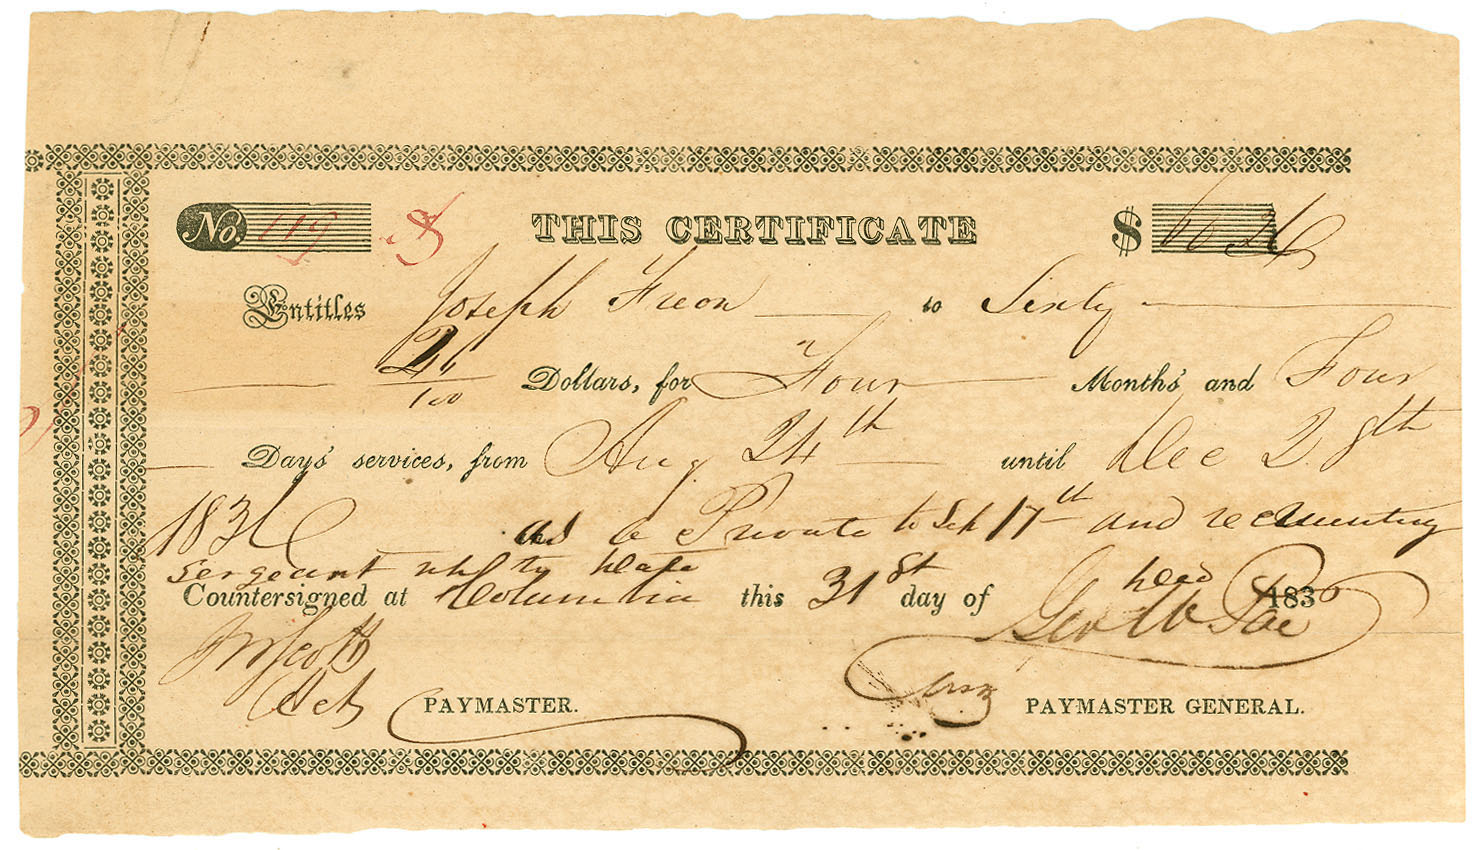 No. 119 THIS CERTIFICATE $ 60 26
Entitles Joseph Freon to Sixty
26/100 Dollars, for Four Months' and Four
Days' services, from Aug 24th until Dec 28th
1836 as a Private to Sep 17th and recruiting
sergeant
Countersigned at Columbia this 31st day of Dec 1836
Geo W Poe
Scott
Act PAYMASTER. PAYMASTER GENERAL.